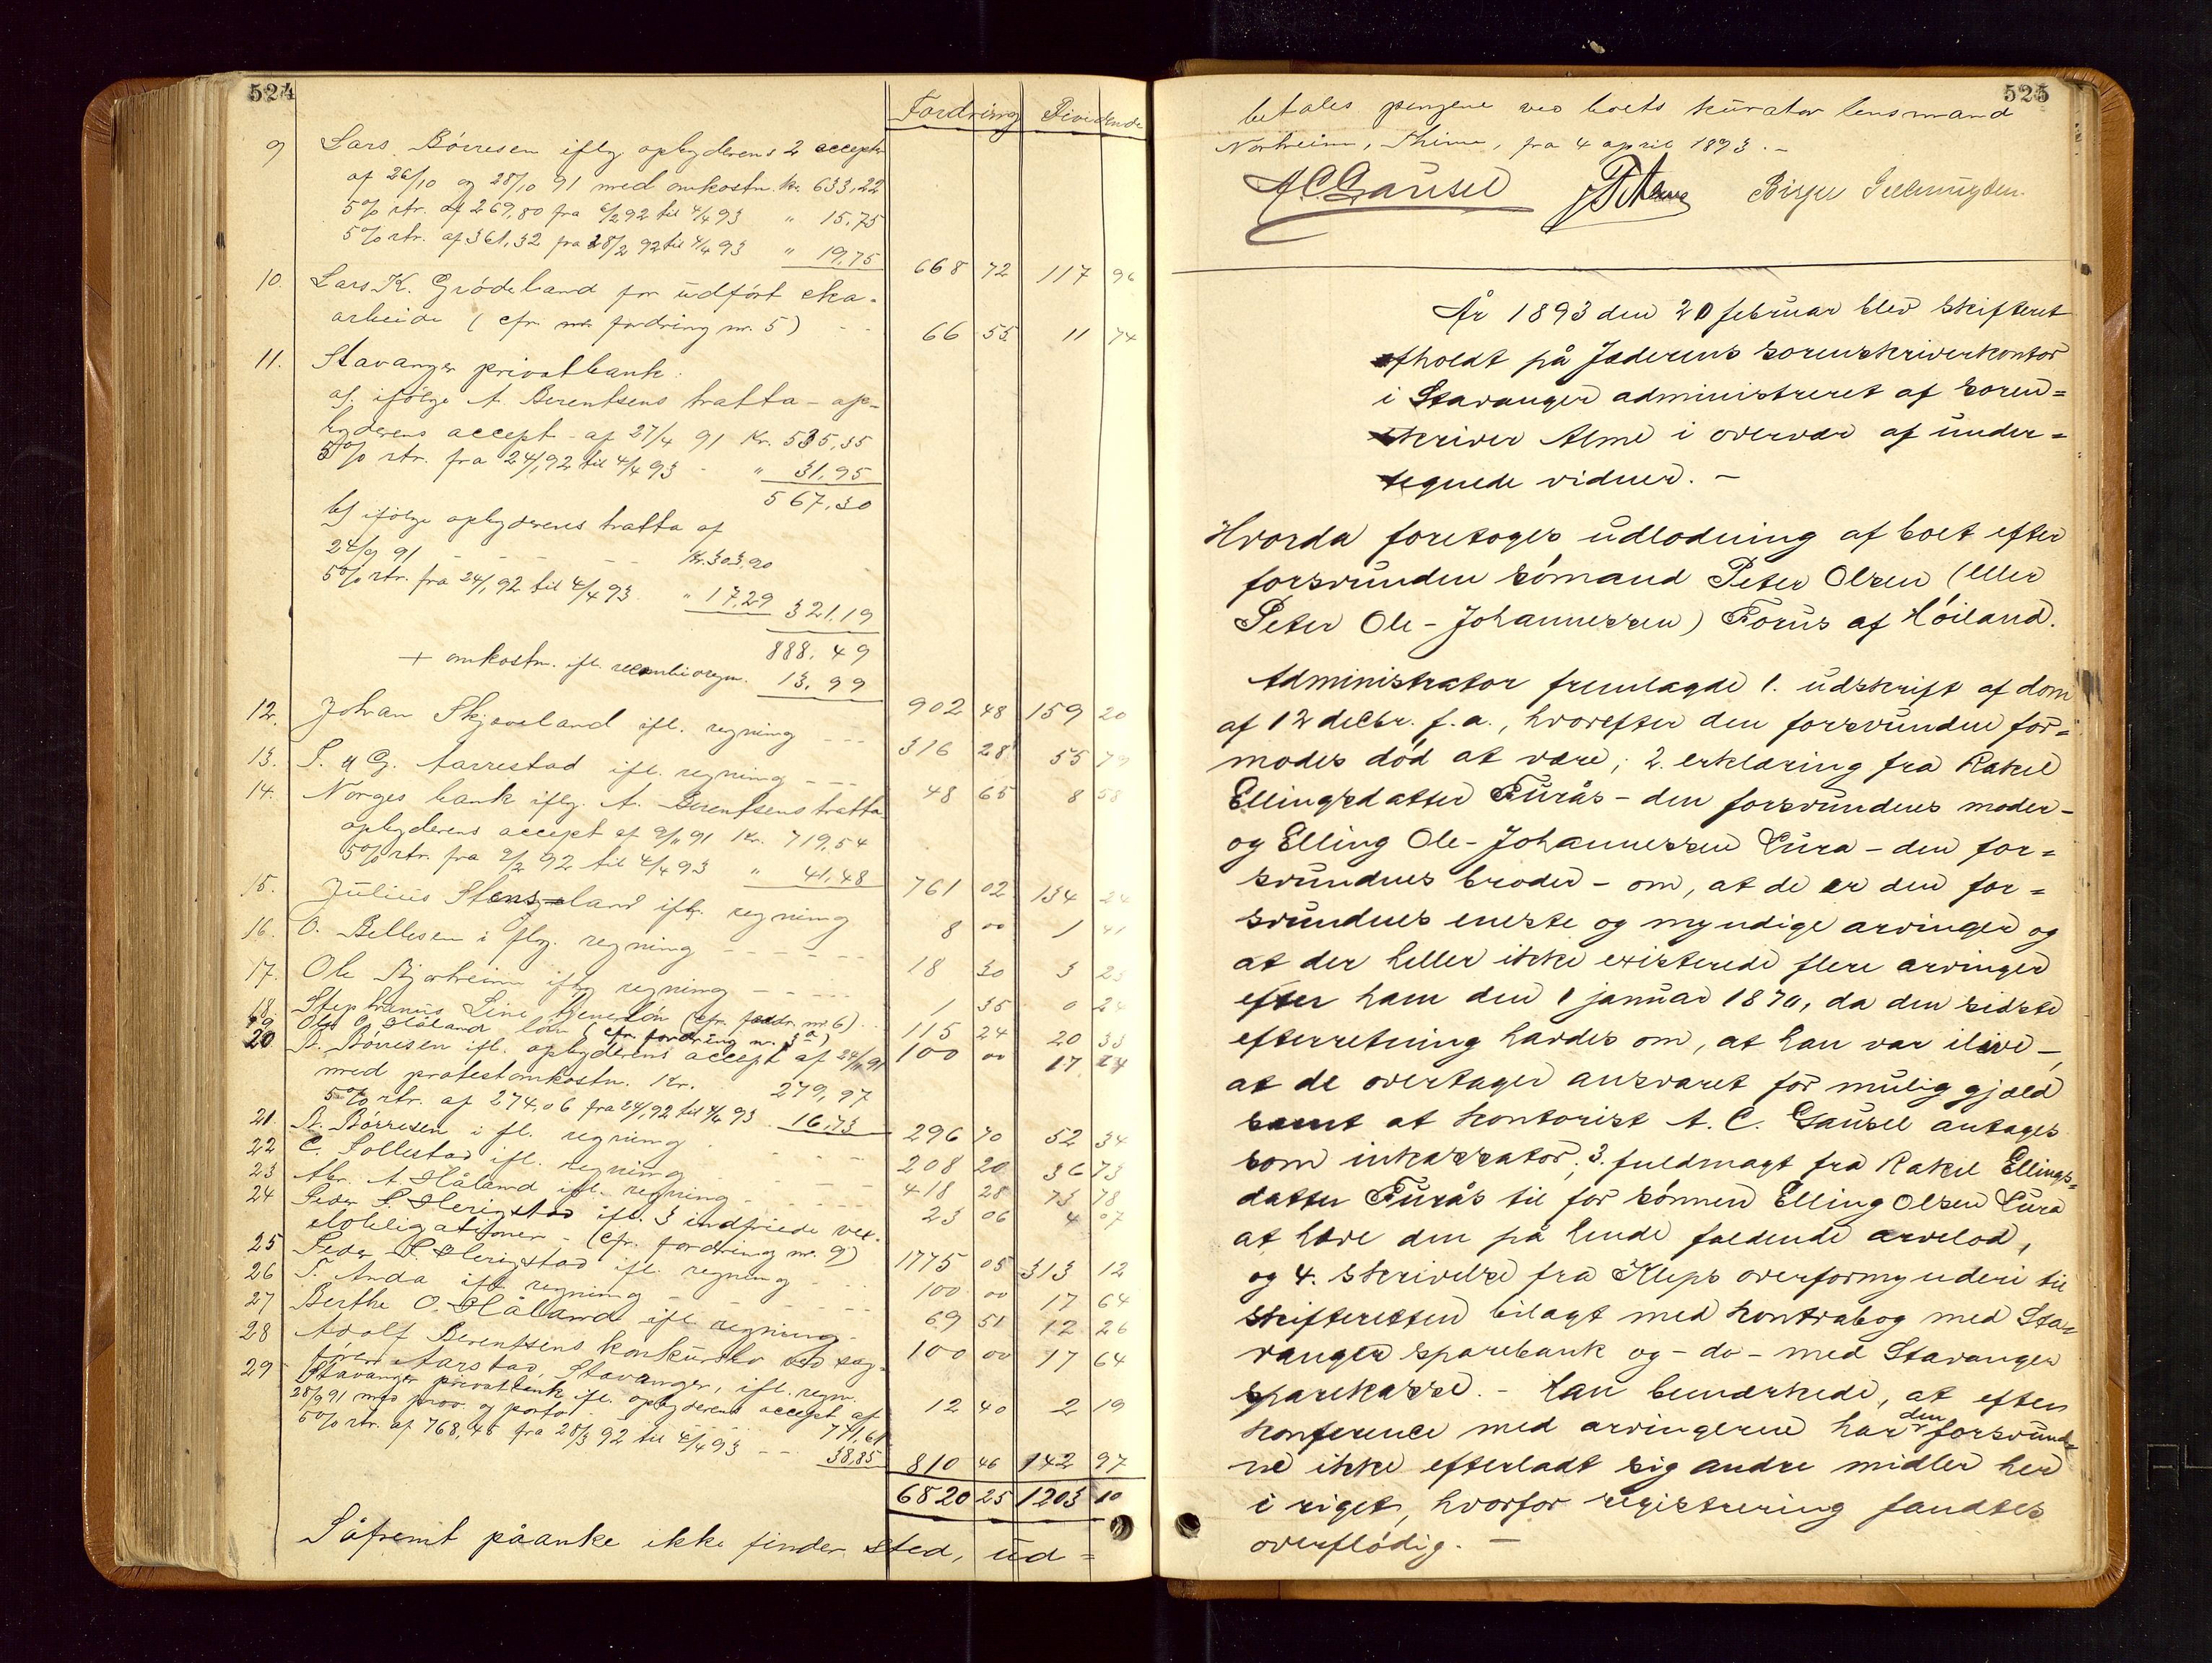 524
Fordring Dividende
9 Lars Börresen iflg. opbyderens 2 accepter
af 26/10 og 28/10 91 med omkostn. kr. 633,22
5% rtr. af 269,80 fra 6/2 92 til 4/4 93 " 15,75
5% rtr. af 361,32 fra 28/2 92 til 4/4 93 " 19,75
668 72 117 96
10. Lars K. Grödeland for udfört sko-
arbeide (cfr. fordring nr. 5) - - 66 55 11 74
11. Stavanger privatbank.
a/. ifölge A. Berentsens tratta - op-
byderens accept - af 27/4 91 Kr. 535,35
5% rtr. fra 24/1 92 til 4/4 93 - " 31,95
567,30
b/ ifölge opbyderens tratta af
24/9 91 - - - - - Kr. 303,90
5% rtr. fra 24/1 92 til 4/4 93. " 17,29 321,19
888,49
+ omkostn. ifl. recambioregn. 13,99
902 48 159 20
12. Johan Skjæveland ifl. regning - - - 316 28 55 79
13. S. & G. Aarrestad ifl. regning - - - 48 65 8 58
14. Norges bank iflg. A. Berentsens tratta
opbyderens accept af 9/11 91 Kr. 719,54
5% rtr. fra 9/2 92 til 4/4 93 " 41,48
761 02 134 24
15. Julius Stensland iflg. regning 8 00 1 41
16. O. Bellesen iflg. regning - - - - - - 18 30 3 23
17. Ole Bjorheim iflg regning - - - - - 1 35 0 24
18. Stephanus Line tjenelön (cfr. fordr. nr. 6) - - 115 24 20 33
19 Ole O. Håland lön (cfr. fordring nr. 3 a) 100 00 17 64
20 B. Börresen ifl. opbyderens accept af 24/11 91
med protestomkostn. Kr. 279,97
5% rtr. af 274,06 fra 24/1 92 til 4/4 93 16,73
296 70 52 34
21 B. Börresen ifl. regning - - - - 208 20 36 73
22 C. Sollestad ifl. regning - - - - 418 28 73 78
23 Abr. A. Håland ifl. regning - - - - 23 06 4 07
24 Peder P. Herigstad ifl. 3 indfriede vex-
elobligationer - (cfr. fordring nr. 9) 1775 05 313 12
25 Peder P. Herigstad ifl. regning - - 100 00 17 64
26 T. Anda ifl. regning - - - - - - 69 51 12 26
27 Berthe O. Håland ifl. regning - 100 00 17 64
28 Adolf Berentsens konkursbo ved sag-
förer Aarstad, Stavanger, ifl. regn. 12 40 2 19
29 Stavanger privatbank ifl. opbyderens accept af
28/9 91 med prov. og porto 771,61
5% rtr. af 768,45 fra 28/3 92 til 4/4 93 - - 38,85
810 46 142 97
6820 25 1203 10
Såfremt påanke ikke finder sted, ud=
525
betales pengene ved boets kurator lensmand
Norheim, Thime, fra 4 april 1893. -
A C Gausel
År 1893 den 20 februar blev skifteret
afholdt på Jæderens sorenskriverkontor
i Stavanger administreret af soren=
skriver Alme i overvær af under=
tegnede vidner. -
Hvorda foretoges udlodning af boet efter
forsvunden sömand Peter Olsen (eller
Peter Ole-Johannessen) Forus af Höiland.
Administrator fremlagde 1. udskrift af dom
af 12 decbr. f.a., hvorefter den forsvundne for=
modes död at være; 2. erklæring fra Rakel
Ellingsdatter Furås - den forsvundnes moder -
og Elling Ole-Johannessen Lura - den for=
svundnes broder - om, at de er den for=
svundnes eneste og myndige arvinger og
at der heller ikke existerede flere arvinger
efter ham den 1 januar 1870, da den sidste
efterretning havdes om, at han var ilive -,
at de overtager ansvaret for mulig gjæld
samt at kontorist A. C. Gausel antages
som inkassator; 3. fuldmagt fra Rakel Ellings=
datter Furås til for sönnen Elling Olsen Lura
at hæve den på hende faldende arvelod,
og 4. skrivelse fra Kleps overformynderi til
skifteretten bilagt med kontrabog med Sta=
vanger sparebank og - do - med Stavanger
sparekasse. - Han bemærkede, at efter
konference med arvingerne har den forsvund=
ne ikke efterladt sig andre midler her
i riget, hvorfor registrering fandtes
overflödig. -